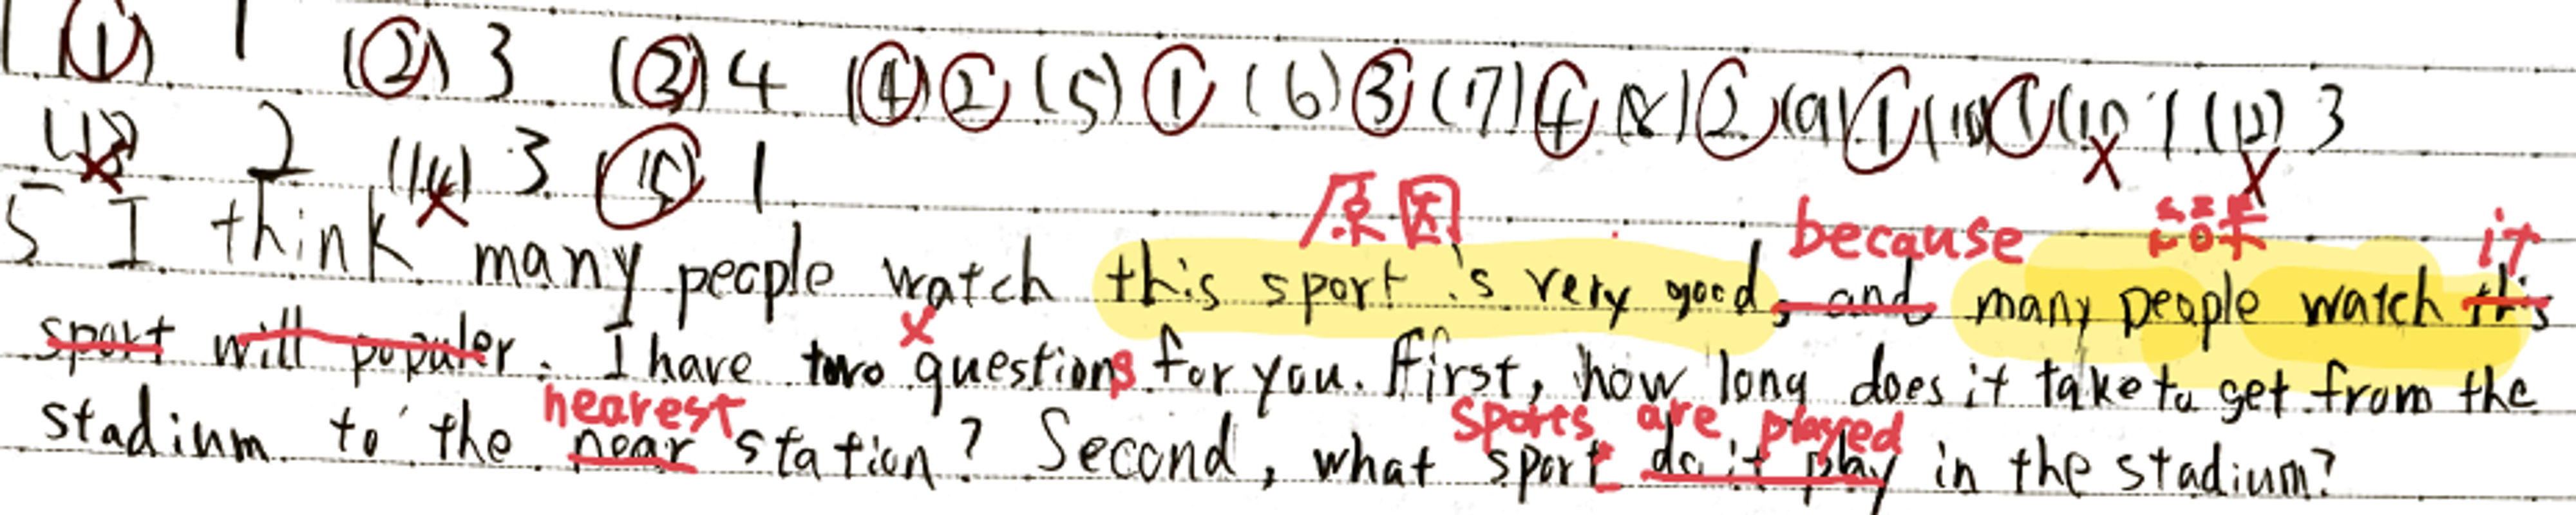 (1) 1 (2) 3 (3) 4 (4) 2 (5) 1 (6) 3 (7) 4 (8) 2 (9) 1 (10) 1 (11) 1 (12) 3
(13) 2 (14) 3 (15) 1
原因 because 結果 it
5 I think many people watch this sport is very good, and many people watch this
sport will populer. I have two questions for you. First, how long does it take to get from the
nearest sports are played
stadium to the near station? Second, what sport do it play in the stadium?